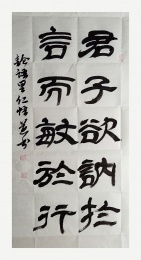 君子欲訥於
言而敏於行
論語里仁